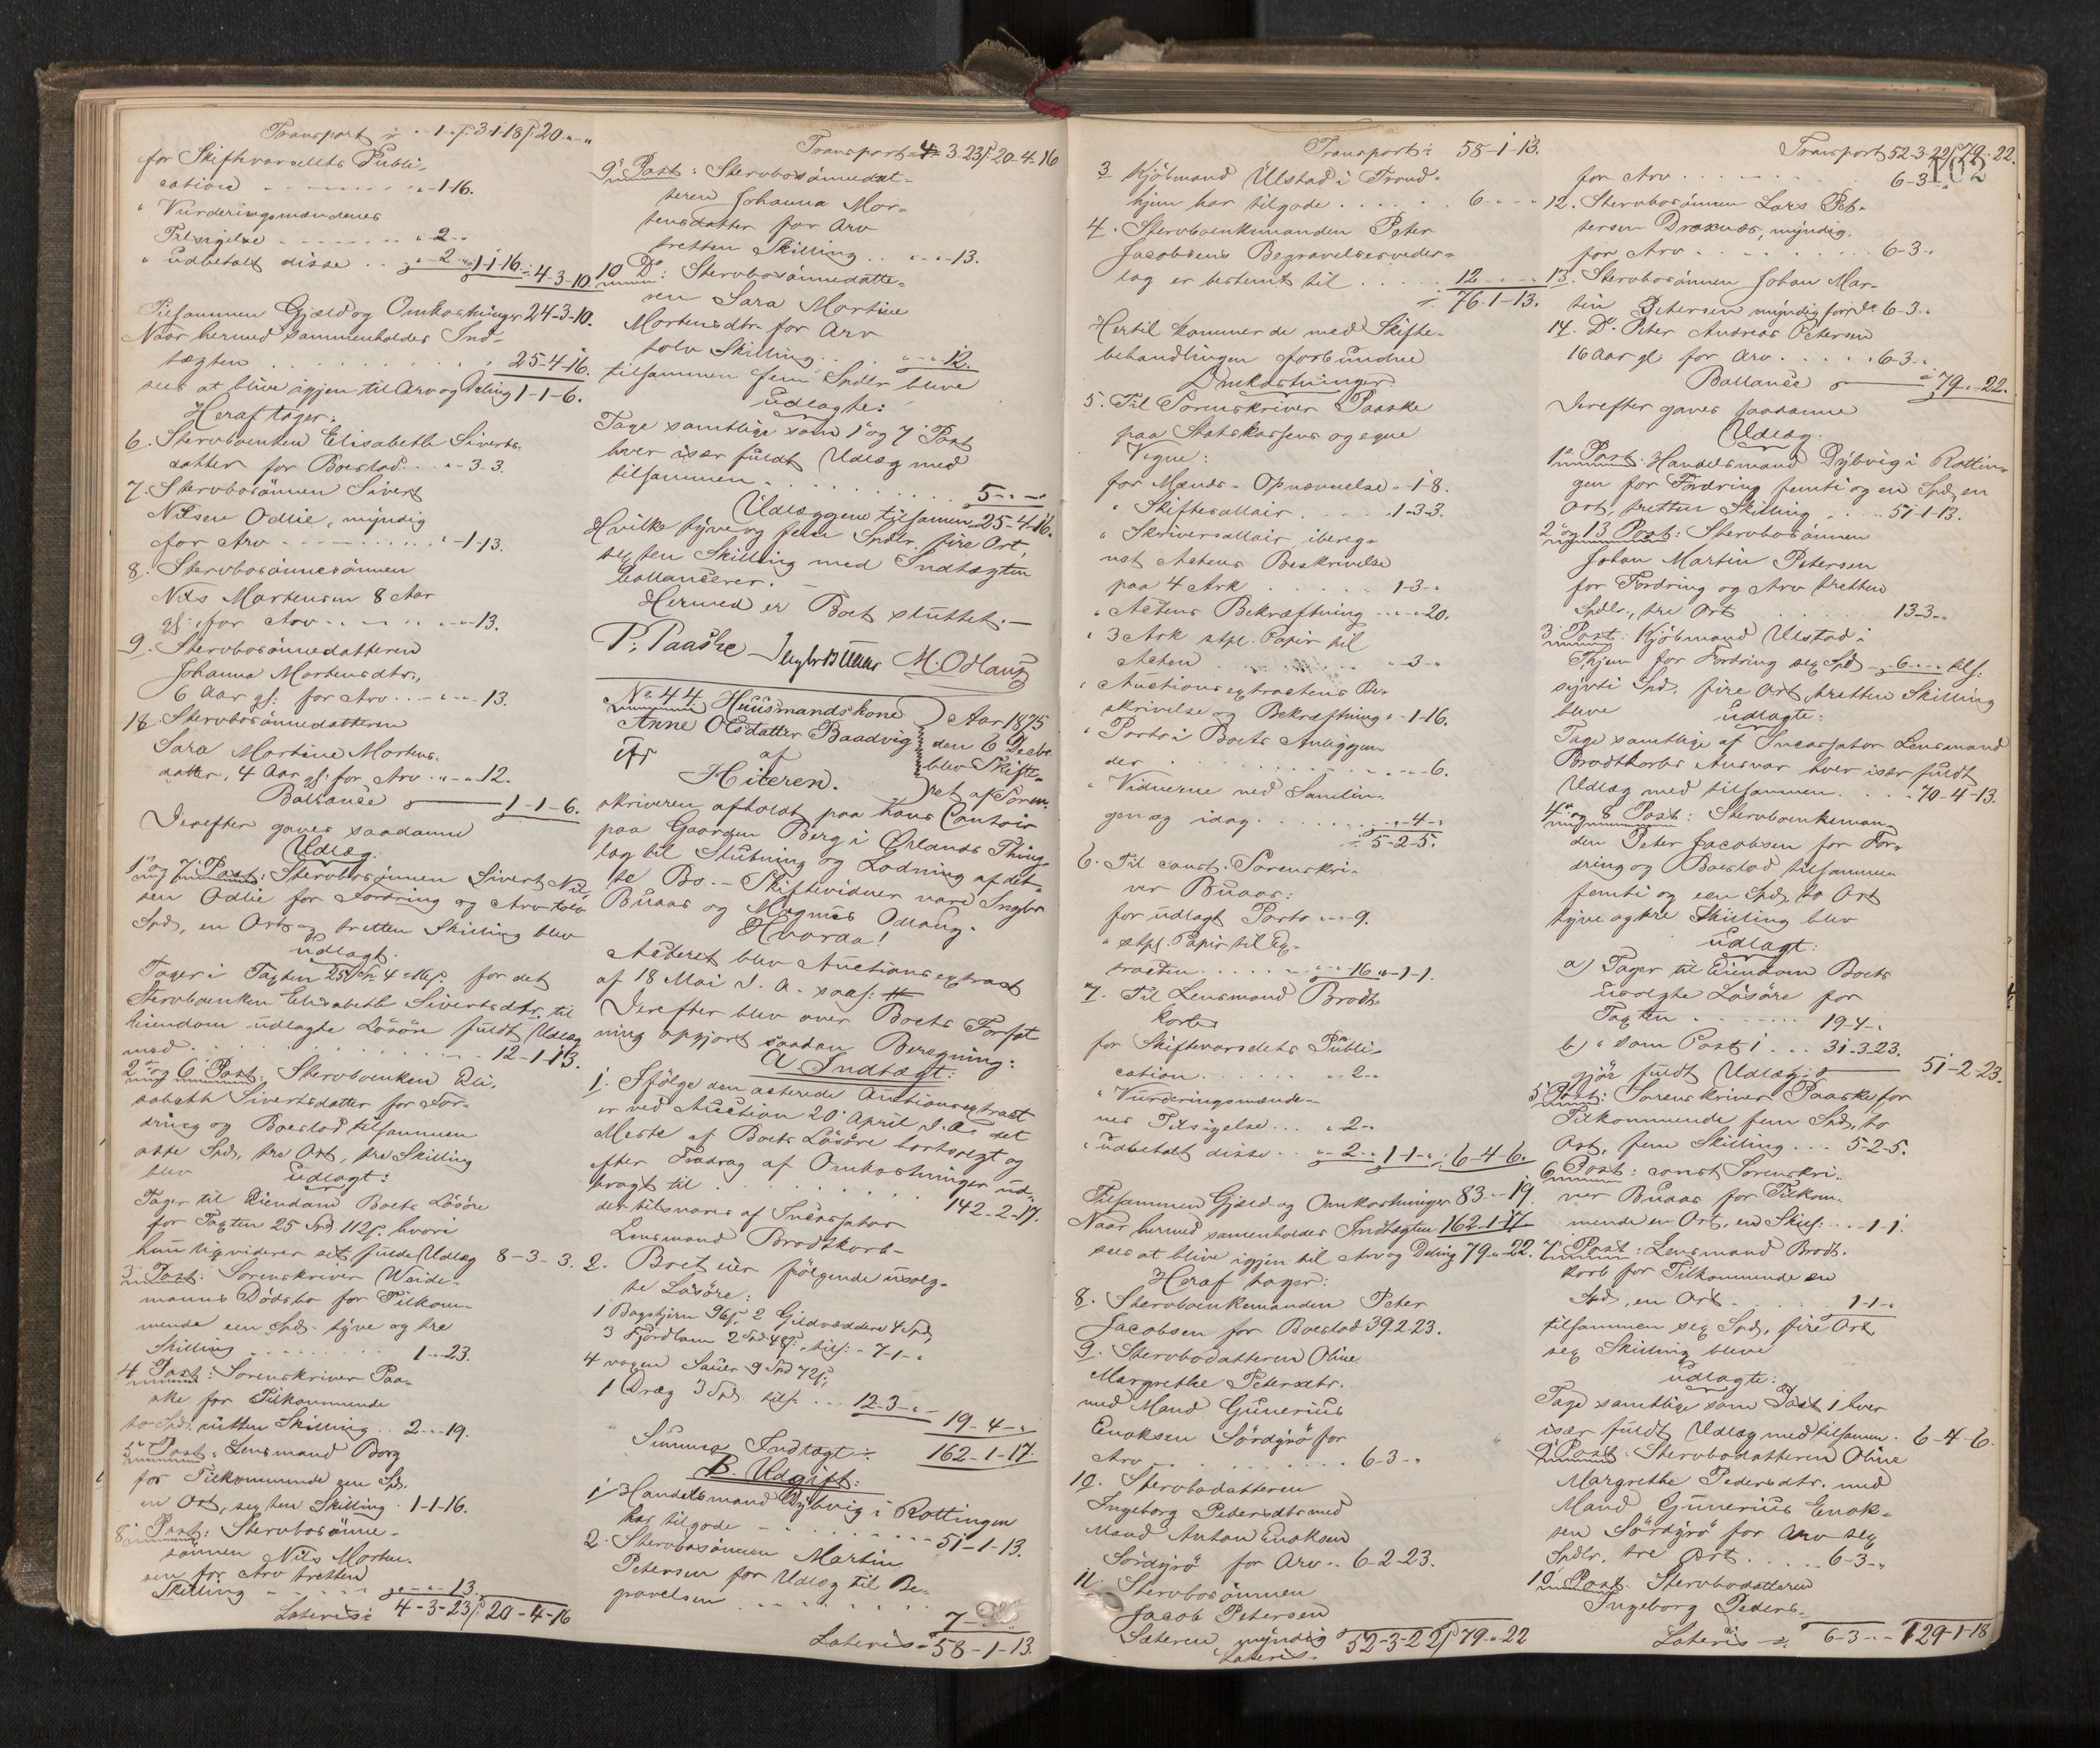 Transport ÷ " - 1 " ƒ 3-1-18 ƒ 20 " - "
for Skiftevarselets Publi-
cation - - - - - - - " - 1-16.
" Vurderingsmændenes
Tilsigelse - - - - - - - " 2 - "
" udbetalt disse . . " - 2 - " 1-1-16 ÷ 4-3-10.
Tilsammen Gjæld og Omkostninger 24-3-10.
Naar hermed sammenholdes Ind-
tægten . . . . . . . . . . 25-4-16.
sees at blive igjen til Arv og Deling 1-1-6.
Heraf tager:
6. Stervboenken Elisabeth Siverts-
datter for Boeslod . . " - 3-3.
7. Stervbosönnen Sivert
Nilsen Odlie, myndig
for Arv - - - - - - - - - " - 1-13.
8. Stervbosönnesönnen
Nils Mortensen 8 Aar
gl: for Arv . . - . . - " - " - 13.
9. Stervbosönnedatteren
Johanna Mortensdtr.,
6 Aar gl: for Arv . . - " - " - 13.
10. Stervbosönnedatteren
Sara Martine Mortens-
datter, 4 Aar gl: for Arv . " - " - 12.
Ballance 1-1-6.
Derefter gaves saadanne
Udlæg.
1 og 7 Post: Stervbosönnen Sivert Nil-
sen Odlie for Fordring og Arv tolv
Spd, en Ort og tretten Skilling blev
udlagt.
Tager i Taxten 25 Spd 4 16 ƒ. for det
Stervboenken Elisabeth Sivertsdtr. til
Eiendom udlagte Lösöre fuldt Udlæg
med . . . . . . . . . . . . 12-1-13.
2 og 6 Post: Stervboenken Eli-
sabeth Sivertsdatter for For-
dring og Boeslod tilsammen
otte Spd, tre Ort, tre Skilling
blev udlagt:
Tager til Eiendom Boets Lösöre
for Taxten 25 Spd 112 ƒ. hvori
hun liqviderer sit fulde Udlæg 8-3-3.
3 Post: Sorenskriver Weide-
manns Dödsbo for Tilkom-
mende een Spd. tyve og tre
Skilling . . . . . . . . . . 1 - " 23.
4 Post: Sorenskriver Paa-
ske for Tilkommende
to Spd. nitten Skilling . . 2 - " 19.
5 Post: Lensmand Borg
for Tilkommende een Spd.
en Ort, sexten Skilling . 1-1-16.
8 Post: Stervbosönne-
sönnen Nils Morten-
sen for Arv tretten
Skilling - - - - - " - " - 13.
Lateris ÷ 4-3-23 ƒ 20-4-16
Transport 4 - 3-23 ƒ. 20-4-16
9 Post: Stervbosönnedat-
teren Johanna Mor-
tensdatter for Arv
tretten Skilling . . " - " - 13.
10 Do: Stervbosönnedatte-
ren Sara Martine
Mortensdtr. for Arv
tolv Skilling . . . " - " - 12.
tilsammen fem Spdlr. bleve
udlagte:
Tage samtlige som 1 og 7 Post
hver især fuldt Udlæg med
tilsammen . . . . . . . . . 5 - " - "
Udlæggene tilsamen 25-4-16.
Hvilke tyve og fem Spdlr. fire Ort,
sexten Skilling med Indtægten
ballancerer. -
Hermed er Boet sluttet. -
P. Paaske Ingbr Buaas M. Odlaug
No. 44. Huusmandskone
Anne Olsdatter Baadvig
af
Hiteren.
Aar 1875
den 6 Decbr.
blev Skifte-
ret af Soren-
skriveren afholdt paa hans Contoir
paa Gaarden Berg i Ørlands Thing-
lag til Slutning og Lodning af det-
te Bo. - Skiftevidner vare Ingbr
Buaas og Magnus Odlaug.
Hvorda!
Acteret blev Auctionsextract
af 18 Mai d. A. saal:
Derefter blev over Boets Forfat-
ning opgjort saadan Beregning:
A Indtægt:
1. Ifölge den acterede Auctionsextract
er ved Auction 20 April d. A. det
Meste af Boets Lösöre bortsolgt og
efter Fradrag af Omkostninger ud-
bragt til . . . . . . . . . . 142-2-17.
der tilsvares af Incassator
Lensmand Brodtkorb -
2. Boet eier fölgende usolg-
te Lösöre:
1 Bagstjern 96 ƒ. 2 Gildvæddere 4 Spd,
3 Fjordlam 2 Spd 48 ƒ., tils: - 7-1- "
4 voxen Sauer 9 Spd 72 ƒ.,
1 Dræg 3 Spd. tils: . . . 12-3 - " - 19-4- "
Summa Indtægt ÷ 162-1-17.
B. Udgift:
1 Handelsmand Dybvig i Rottingen
har tilgode - . . . . . - - - 51-1-13.
2. Stervbosönnen Martin
Petersen for Udlæg til Be-
gravelsen - - . . . . . . 7 -
Lateris ÷ 58-1-13.
Transport ÷ 58-1-13.
3 Kjöbmand Ulstad i Trond-
hjem har tilgode . . . . . . 6 - " - "
4. Stervboenkemanden Peter
Jacobsens Begravelsesveder-
lag er bestemt til . . . . . 12 - " - "
÷ 76-1-13.
Hertil kommer de med Skifte-
behandlingen forbundne
Omkostninger.
5. Til Sorenskriver Paaske
paa Statskassens og egne
Vegne:
for Mænds-Opnævnelse " - 1-8.
" Skiftesallair . . . . . 1-3-3.
" Skriversallair ibereg-
net Actens Beskrivelse
paa 4 Ark . . . . . . 1-3- "
" Actens Bekræftning . . " - " 20.
" 3 Ark stpl. Papir til
Acten . . . . . . " - 3 - "
" Auctionsextractens Be-
skrivelse og Bekræftning " - 1-16.
" Porto i Boets Anliggen-
der . . . . . . . . . . . " - " 6.
" Vidnerne ved Samlin-
gen og idag . . . . . . . " - 4 - "
÷ 5-2-5.
6. Til const. Sorenskri-
ver Buaas:
for udlagt Porto " - " 9.
" stpl. Papir til Ex-
tracten . . . . . . . " - " 16 " - 1-1.
7. Til Lensmand Brodt-
korb
for Skiftevarselets Publi-
cation . . . . . . " - 2 - "
" Vurderingsmænde-
nes Tilsigelse . . . " 2 - "
" udbetalt disse . . " - 2 - " 1-1- " ÷ 6-4-6.
Tilsammen Gjæld og Omkostninger 83 - " 19.
Naar hermed samenholdes Indtægten 162-1-17
sees at blive igjen til Arv og Deling 79 - " 22.
Heraf tager:
8. Stervboenkemanden Peter
Jacobsen for Boeslod 39.2-23.
9. Stervbodatteren Oline
Margrethe Petersdtr.
med Mand Gunerius
Enoksen Sördyrö for
Arv . . . . . . . . . . . 6-3- "
10. Stervbodatteren
Ingeborg Petersdtr med
Mand Anton Enoksen
Sördyrö for Arv . . 6-2-23.
11. Stervbosönnen
Jacob Petersen
Sæteren, myndig 52-3-22 ƒ 79 - " 22
Lateris -
Transport 52-3-22 ƒ 79 - " 22.
102
for Arv . . . . . . . . 6-3- "
12. Stervbosönnen Lars Pet-
tersen Draxnæs, myndig.
for Arv . . . . . . . . . 6-3- "
13. Stervbosönnen Johan Mar-
tin Petersen myndig for do 6-3- "
14. Do Peter Andreas Petersen
16 Aar gl: for Arv . . . . . 6-3- "
Ballance 79 - " 22.
Derefter gaves saadanne
Udlæg.
1 Post: Handelsmand Dybvig i Rottin-
gen for Fordring femti og en Spd, en
Ort, tretten Skilling . . . . 51-1-13.
2 og 13 Post: Stervbosönnen
Johan Martin Petersen
for Fordring og Arv tretten
Spdlr., tre Ort . . . . 13-3- "
3 Post: Kjöbmand Ulstad i
Thjem for Fordring sex Spd - 6 - " - " tils:
sytti Spd. fire Ort, tretten Skilling
bleve udlagte:
Tage samtlige af Incassator Lensmand
Brodtkorbs Ansvar hver især fuldt
Udlæg med tilsammen . . . 70-4-13.
4 og 8 Post: Stervboenkeman-
den Peter Jacobsen for For-
dring og Boeslod tilsammen
femti og een Spd, to Ort
tyve og tre Skilling blev
udlagt:
a) Tager til Eiendom Boets
usolgte Lösöre for
Taxten . . . . . . . . 19-4- "
b) " som Post 1 . . . 31-3-23.
gjör fuldt Udlæg 51-2-23.
5 Post: Sorenskriver Paaske for
Tilkommende fem Spd, to
Ort, fem Skilling . . . 5-2-5.
6 Post: const Sorenskri-
ver Buaas for Tilkom-
mende en Ort, en Skill: . . . 1-1.
7 Post: Lensmand Brodt-
korb for Tilkommende en
Spd, en Ort . . . . . . 1-1- "
tilsammen sex Spd, fire Ort,
sex Skilling bleve
udlagte:
Tage samtlige som Post 1 hver
især fuldt Udlæg med tilsamen . 6-4-6.
9 Post: Stervbodatteren Oline
Margrethe Pedersdtr. med
Mand Gunerius Enok-
sen Sördyrö for Arv sex
Spdlr. tre Ort . . . . . 6-3- "
10 Post. Stervbodatteren
Ingeborg Peders-
Lateris ÷ 6-3 - " - 129-1-18